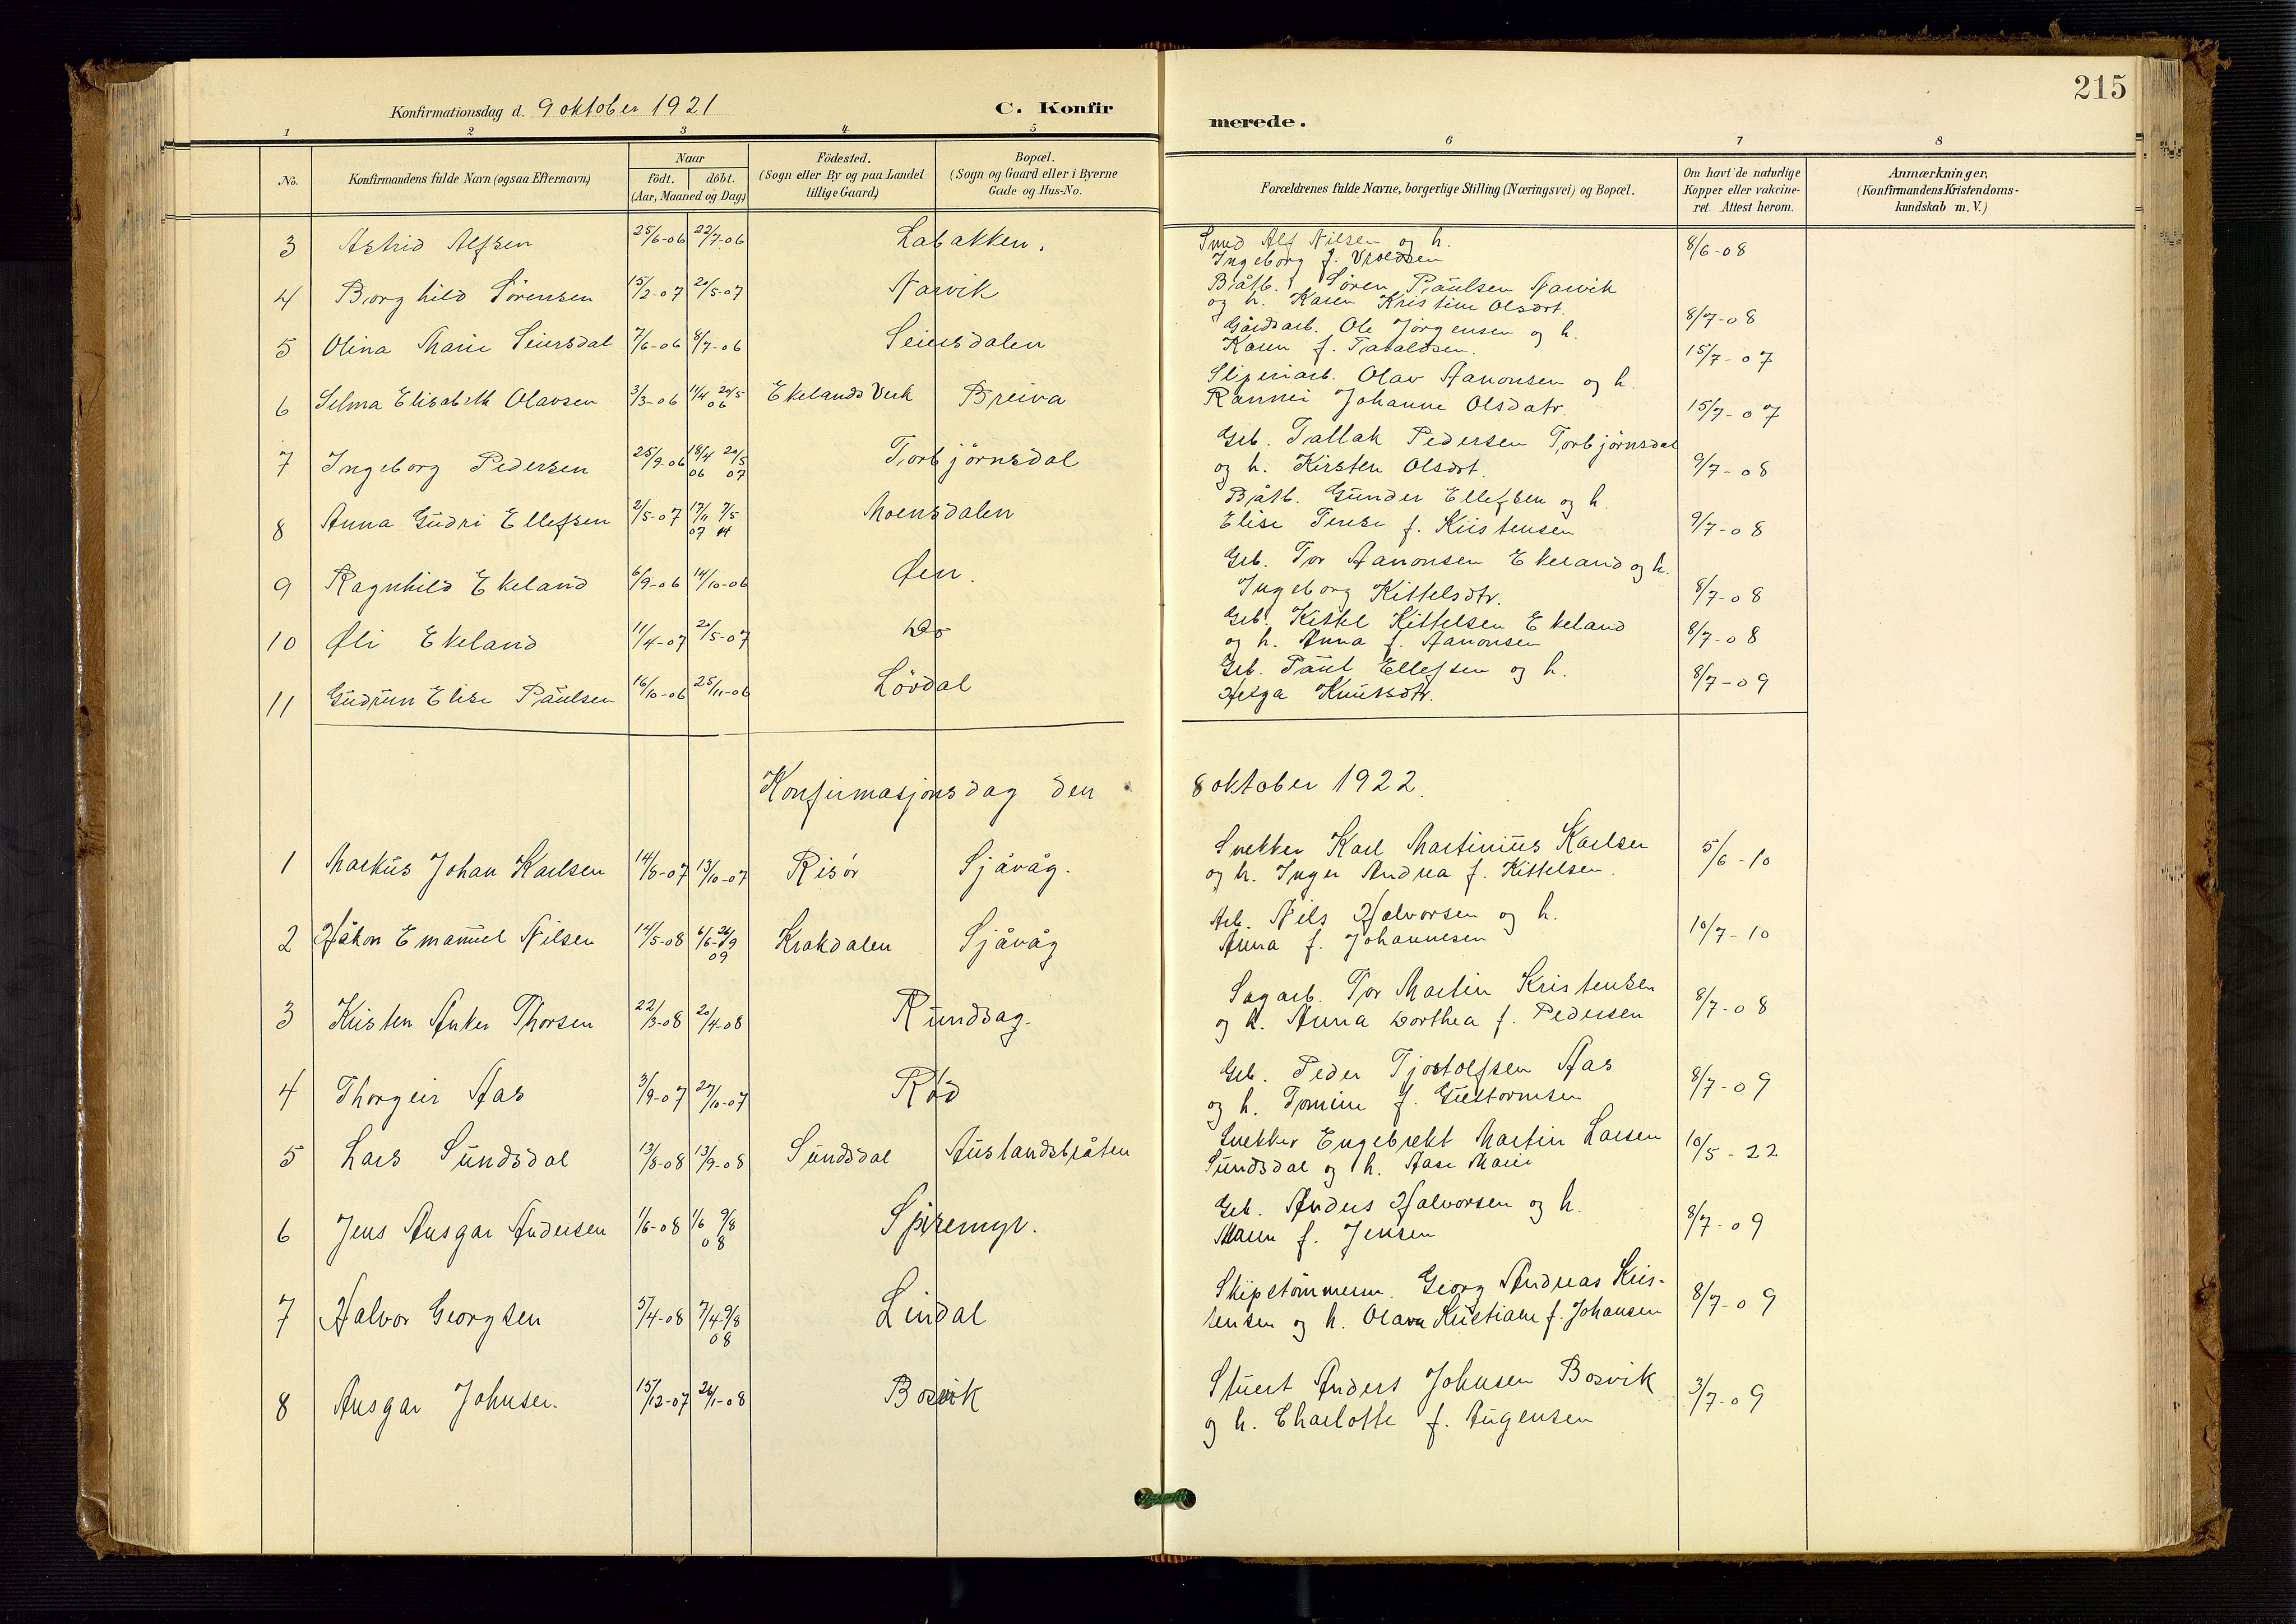 215
Konfirmationsdag d. 9 oktober 1921 C. Konfirmerede.
1 2 3 4 5 6 7 8
No.
Konfirmandens fulde Navn (ogsaa Efternavn)
Naar
födt. döbt.
(Aar, Maaned og Dag)
Födested.
(Sogn eller By og paa Landet
tillige Gaard)
Bopæl.
(Sogn og Gaard eller i Byerne
Gade og Hus-No.
Forældrenes fulde Navne, borgerlige Stilling (Næringsvei) og Bopæl.
Om havt de naturlige
Kopper eller vakcine-
ret. Attest herom.
Anmærkninger,
(Konfirmandens Kristendoms-
kundskab m. V.)
3 Astrid Alfsen 25/6-06 22/7-06 Labakken. Smed Alf Nilsen og h. 8/6-08
Ingeborg f. Vroldsen
4 Borghild Sörensen 15/2-07 20/5-07 Narvik Bråtb. Sören Paulsen Narvik
og h. Karen Kristine Olsdt. 8/7-08
5 Olina Marie Seiersdal 7/6-06 8/7-06 Seiersdalen Gårdsarb. Ole Jörgensen og h.
Karen f. Taraldsen. 15/7-07
6 Selma Elisabeth Olavsen 3/3-06 11/4 20/5 06 Ekelands Verk Breiva Sliperiarb. Olav Aanonsen og h.
Rannei Johanne Olsdatr. 15/7-07
7 Ingeborg Pedersen 25/9-06 18/4 20/5 06 07 Torbjörnsdal Gb. Tallak Pedersen Torbjörnsdal
og h. Kirsten Olsdt. 9/7-08
8 Anna Gudri Ellefsen 2/5-07 17/11 7/5 07 Moensdalen Bråtb. Gunder Ellefsen og h.
Elise Terese f. Kristensen 9/7-08
9 Ragnhild Ekeland 6/9-06 14/10-06 Øen. Gb. Tor Aanonsen Ekeland og h.
Ingeborg Kittelsdtr. 8/7-08
10 Øli Ekeland 11/4-07 20/5-07 Do Gb. Kittel Kittelsen Ekeland 8/7-08
og h. Anna f. Aanonsen
11 Gudrun Elise Paulsen 16/10-06 25/11-06 Lövdal Gb. Paul Ellefsen og h. 8/7-09
Helga Knutsdtr.
Konfirmasjonsdag den 8 oktober 1922.
1 Markus Johan Karlsen 14/8-07 13/10-07 Risör Sjåvåg. Snekker Karl Martinius Karlsen 5/6-10
og h. Inger Andrea f. Kittelsen.
2 Håkon Emanuel Nilsen 14/5-08 Krokdalen Sjåvåg Arb. Nils Halvorsen og h. 10/7-10
Anna f. Johannesen
3 Kristen Anker Thorsen 22/3-08 20/4-08 Rundsag. Sagarb. Tor Martin Kristensen 8/7-08
og h. Anna Dorthea f. Pedersen
4 Thorgeir Aas 3/9-07 27/10-07 Rød Gb. Peder Tjostolfsen Aas 8/7-09
og h. Tomine f. Guttormsen
5 Lars Sundsdal 13/8-08 13/9-08 Sundsdal Auslandsbråten Snekker Engebrekt Martin Larsen 10/5-22
Sundsdal og h. Aase Marie
6 Jens Ansgar Andersen 1/6-08 1/6 9/8 08 Spiremyr. Gb. Anders Halvorsen og h. 8/7-09
Maren f. Jensen
7 Halvor Georgsen 5/4-08 7/4 9/8 08 Lindal Skipstömmerm. Georg Andreas Kris- 8/7-09
tensen og h. Olava Kristiane f. Johansen
8 Ansgar Johnsen. 15/12-07 26/1-08 Bosvik Stuert Anders Johnsen Bosvik 3/7-09
og h. Charlotte f. Augensen